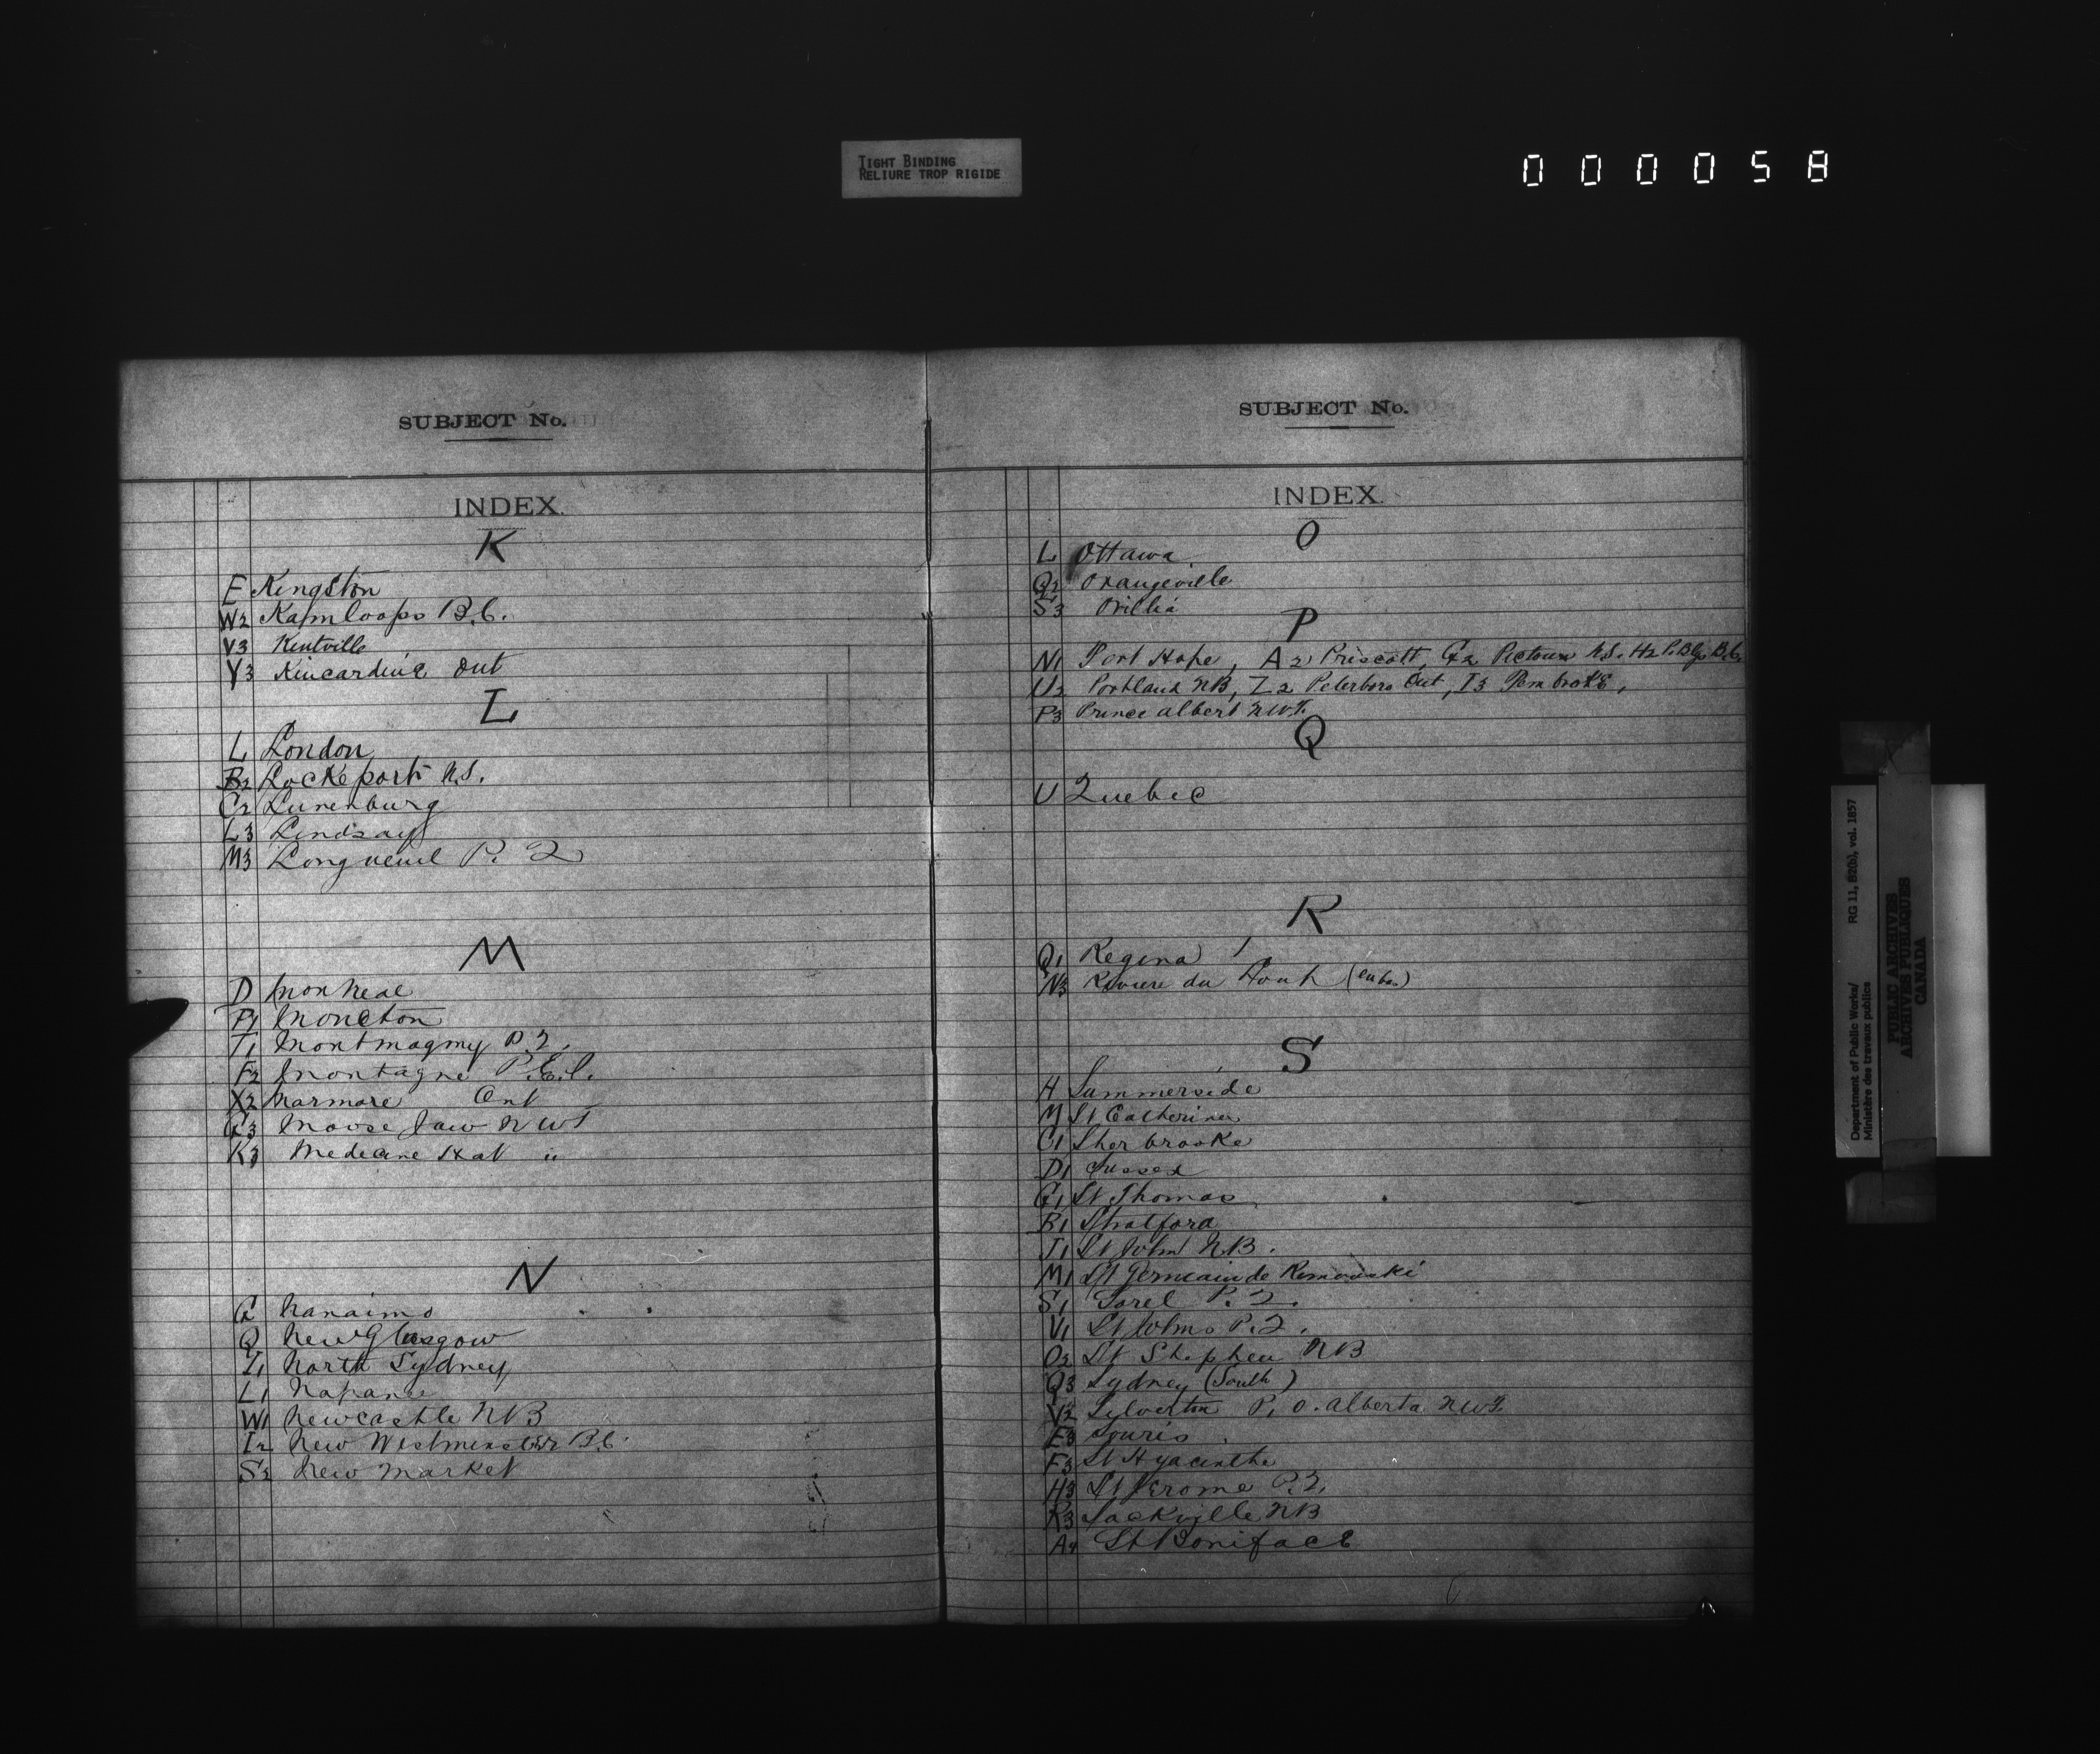 TIGHT BINDING
RELIURE TROP RIGIDE
000058
SUBJECT No.
INDEX.
K
E Kingston
W2 Kamloops B.C.
V3 Kentville
Y3 Kincardine Ont
L
L London
B2 Lockeport N.S.
C2 Lunenburg
L3 Lindsay
M3 Longueuil P. Q
M
D Montreal
P1 Moncton
T1 Montmagny P.Q.
F2 Montague P.E.I.
X2 Marmora Ont
G3 Moose Jaw NWT
K3 Medecine Hat "
N
G Nanaimo
Q New Glasgow
Z1 North Sydney
L1 Napanee
W1 Newcastle NB
I2 New Westminster B.C.
S2 New Market
SUBJECT No.
INDEX.
O
L Ottawa
Q2 Orangeville
S3 Orillia
P
N1 Port Hope, A2 Priscott, G2 Pictou N.S. H2 P. Blgs B.C.
U2 Portland NB, Z2 Peterboro Ont, I3 Pembroke,
P3 Prince Albert N.W.T.
Q
U Quebec
R
Q1 Regina
N3 Riviere du
S
H Summerside
M St Catherines
C1 Sherbrooke
D1 Sussex
G1 St Thomas
B1 Stratford
J1 St John NB.
M1 St Germain de Remouski
S1 Sorel P.Q.
V1 St Johns P.Q.
O2 St Stephen NB
Q3 Sydney (South)
V2 Sylverton P.O. Alberta NWT.
E3 Souris
F3 St Hyacinthe
H3 St Jerome P.Q.
R3 Sackville NB
A4 St Boniface
Department of Public Works/ RG 11, B2(b), vol. 1857
Ministère des travaux publics
PUBLIC ARCHIVES
ARCHIVES PUBLIQUES
CANADA